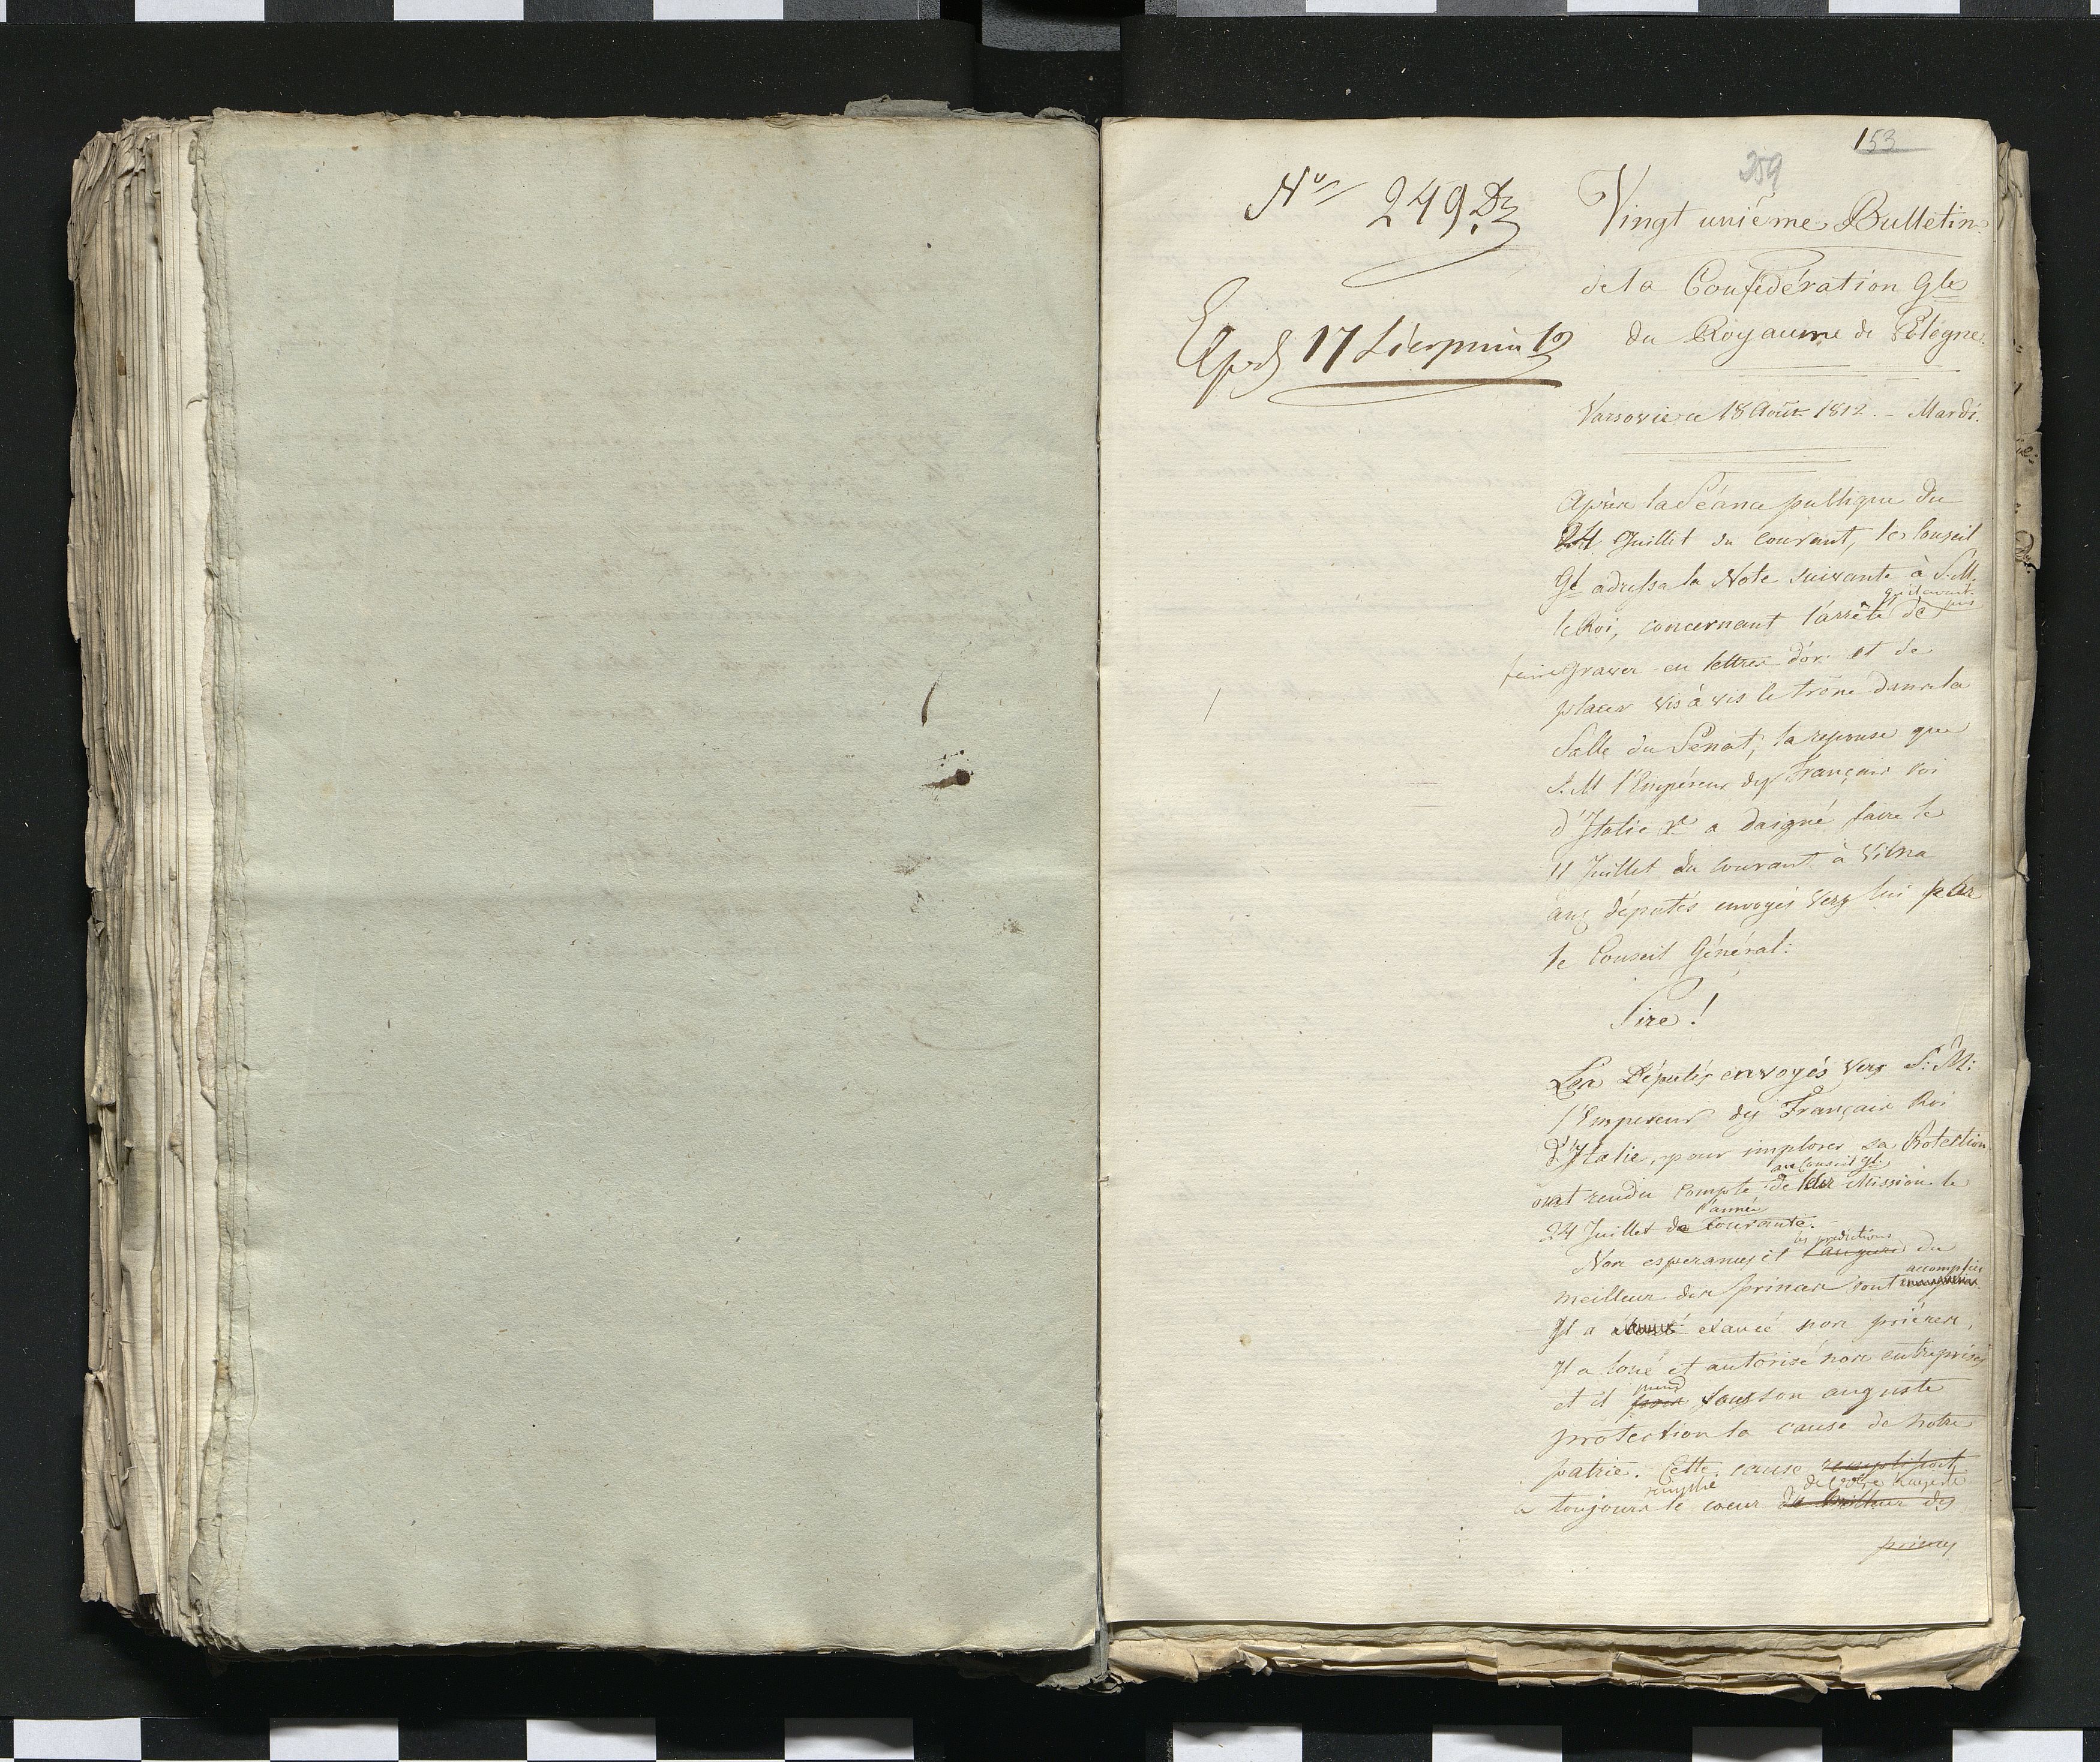 153
259
No 249 Dz
Exp 17 Sierpnia 12
Vingt unième Bulletin
de la Conféderation Gle
du Royaume de Pologne.
Varsovie ce 18 Août 1812. - Mardi.
Après la Séance publique du
24 Juillet du courant, le Conseil
Gl adressa la Note suivante à S. M.
qu'il avait pris
le Roi, concernant l'arrêté de
faire graver en lettres d'or et de
placer vis à vis le trône dans la
Salle du Senat, la reponse que
S. M l'Empéreur des Français roi
d'Italie &c a daigné faire le
11 Juillet du courant à Vilna
aux députés envoyés vers lui par
le Conseil Général:
Sire!
Les Députés envoyés vers S: M:
l'Empereur des Français Roi
d'Italie, pour implorer sa Protection
au Conseil gl.
ont rendu compte de leur Mission le
l'année
24 Juillet de courante.
les prédictions
Nos esperances et l'augure du
accomplies
meilleur des princes sont
Il a exaucé nos prières,
Il a loué et autorisé nos entreprises
prend
et il sous son auguste
protection la cause de notre
patrie. Cette cause remplissoit
remplie de Votre Majesté
a toujours le coeur du meilleur des
princes